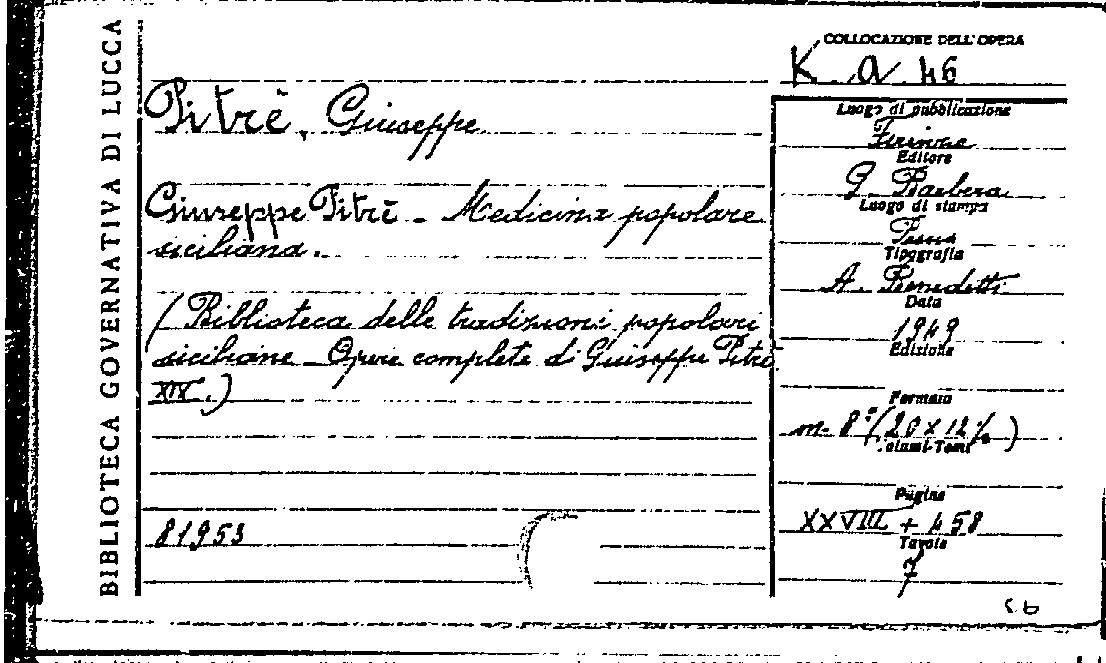 BIBLIOTECA GOVERNATIVA DI LUCCA
COLLOCAZIONE DELL'OPERA
K a 46
Pitrè, Giuseppe
Giuseppe Pitrè - Medicina popolare
siciliana.
(Biblioteca delle tradizioni popolari
siciliane - Opere complete di Giuseppe Pitrè
XIX.)
81953
Luogo di pubblicazione
Firenze
Editore
G. Barbera
Luogo di stampa
Tipografia
A. Benedetti
Data
1949
Edizione
Formato
in-8° (20 x 12½)
Volumi-Tomi
Pagine
XXVIII + 458
Tavole
7